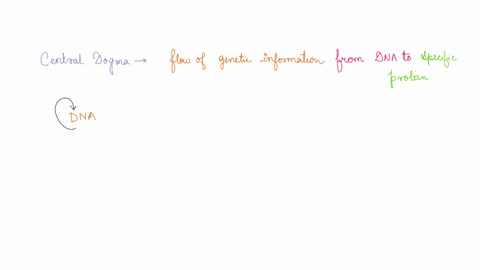 Central Dogma → flow of genetic information from DNA to specific
protein.
DNA